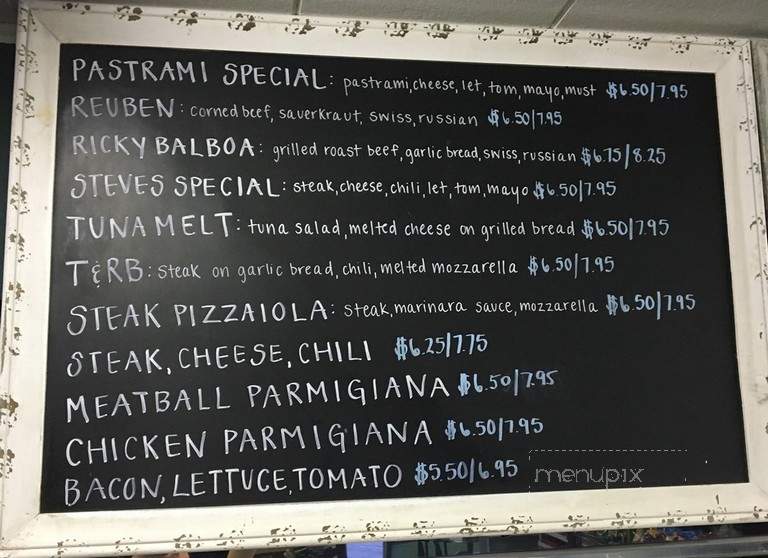 PASTRAMI SPECIAL: pastrami,cheese,let,tom,mayo,must $6.50/7.95
REUBEN: corned beef, sauerkraut, swiss, russian $6.50/7.95
RICKY BALBOA: grilled roast beef, garlic bread, swiss, russian $6.75/8.25
STEVES SPECIAL: steak, cheese, chili, let, tom, mayo $6.50/7.95
TUNA MELT: tuna salad, melted cheese on grilled bread $6.50/7.95
T&RB: steak on garlic bread, chili, melted mozzarella $6.50/7.95
STEAK PIZZAIOLA: steak, marinara sauce, mozzarella $6.50/7.95
STEAK, CHEESE, CHILI $6.25/7.75
MEATBALL PARMIGIANA $6.50/7.95
CHICKEN PARMIGIANA $6.50/7.95
BACON, LETTUCE, TOMATO $5.50/6.95
menupix